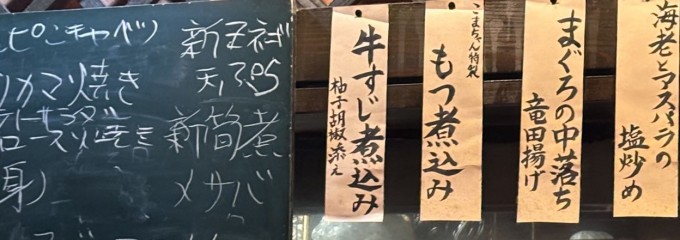 新玉ネギ
天ぷら
新筍煮
メサバ
ピこキャベツ
カマ焼き
ロース焼き
身)
海老とアスパラの
塩炒め
まぐろの中落ち
竜田揚げ
こまちゃん特製
もつ煮込み
牛すじ煮込み
柚子胡椒添え